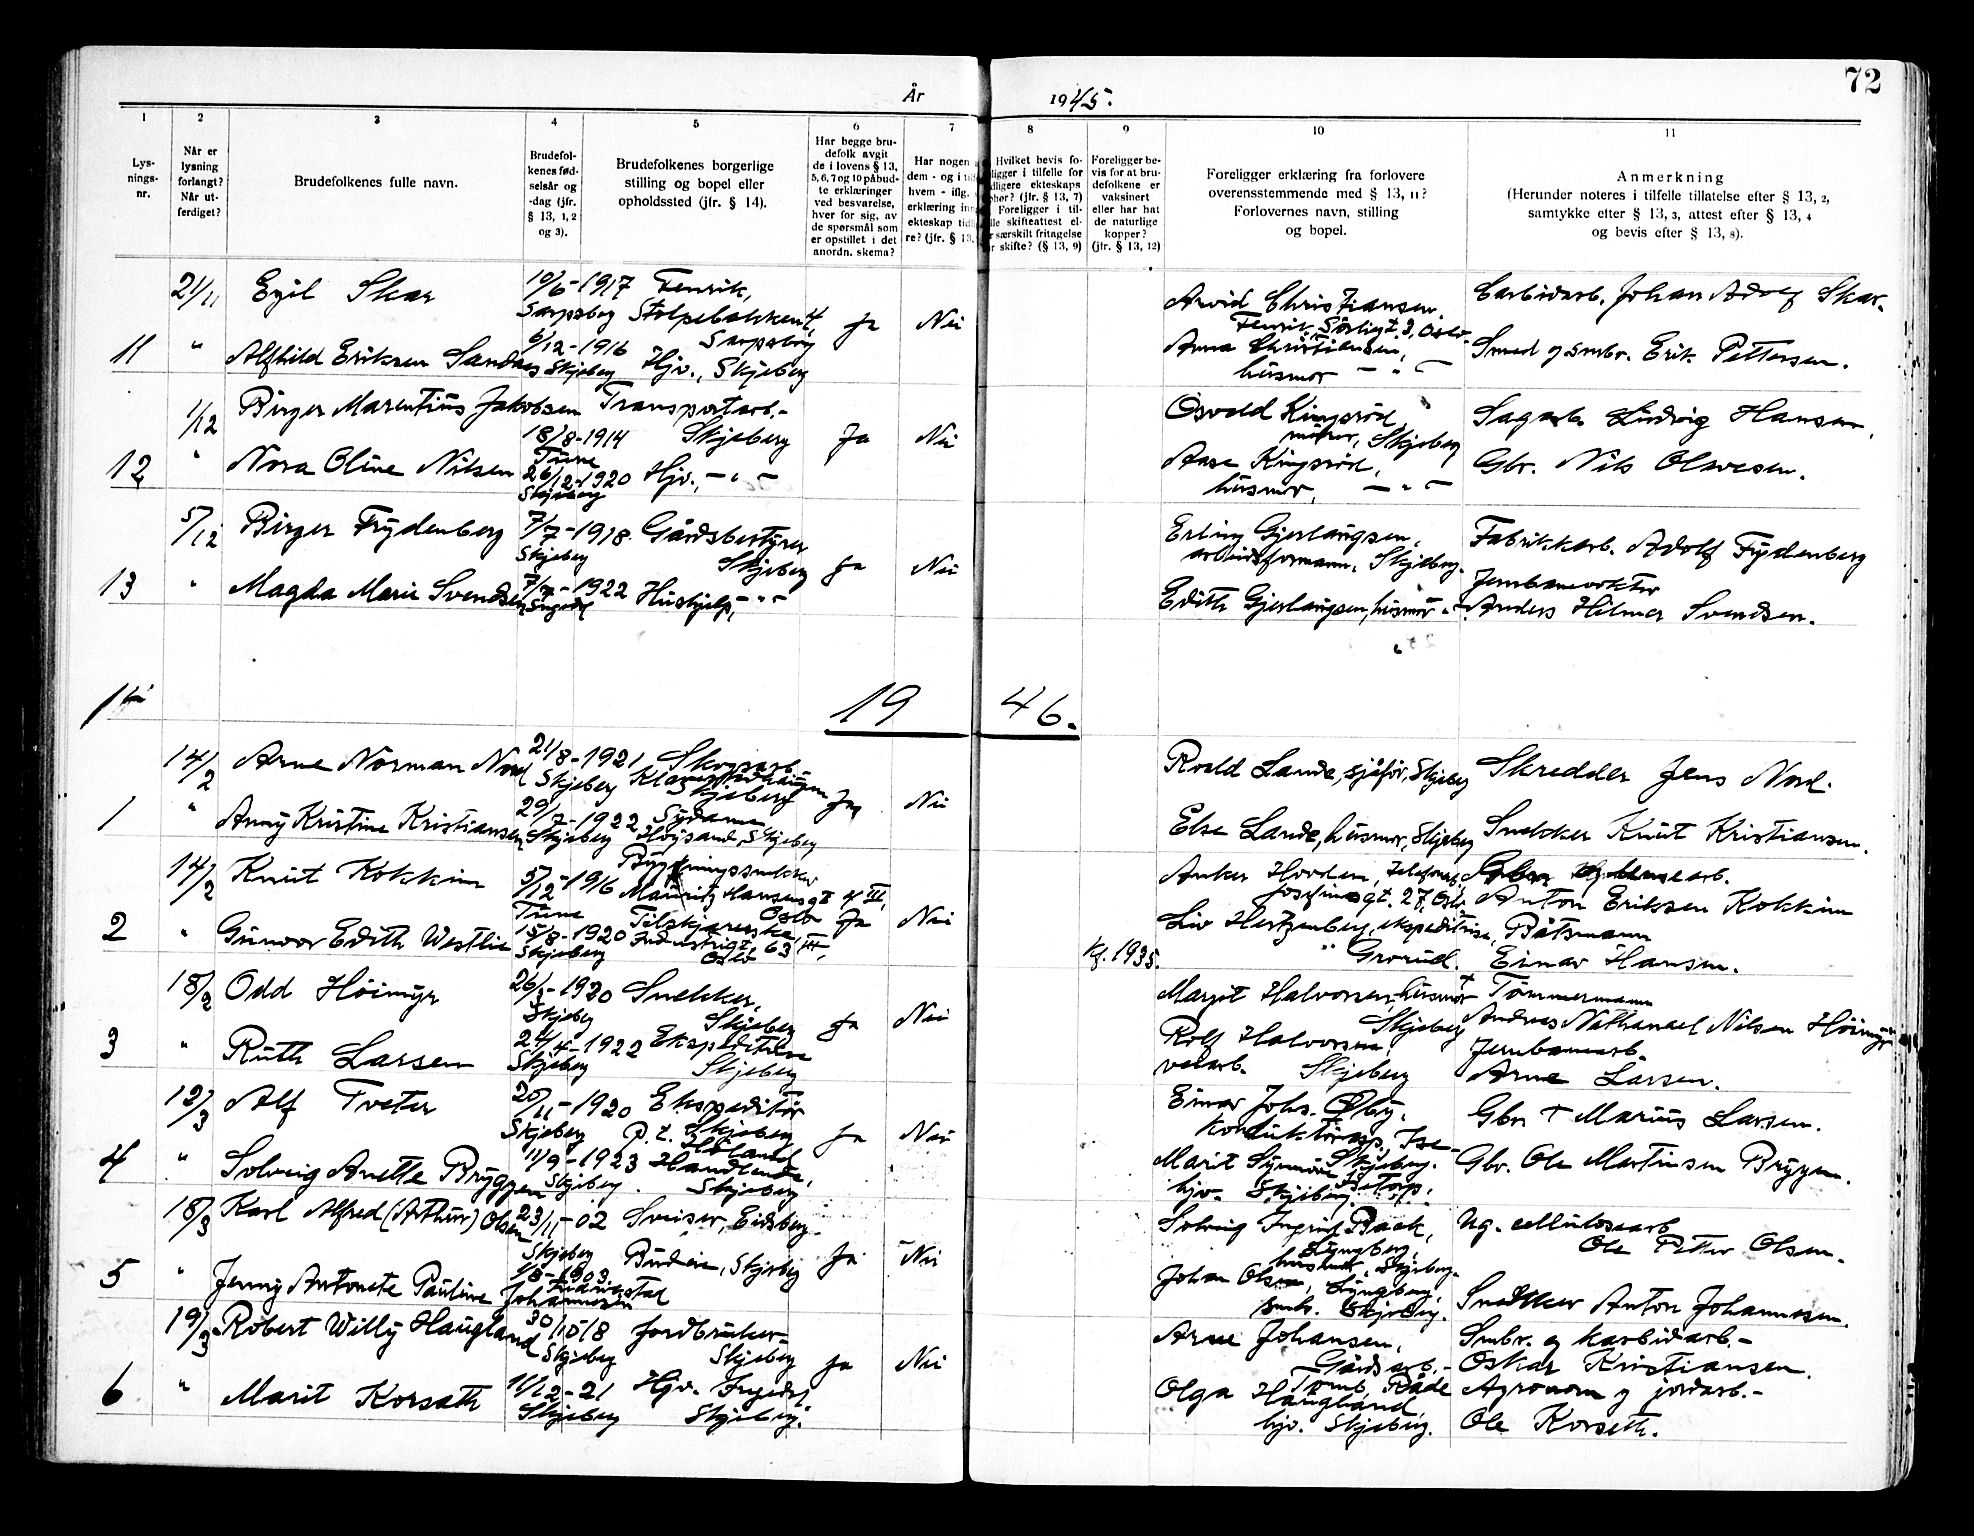 72
År 1945.
1 2 3 4 5 6 7 8 9 10 11
Lys-
nings-
nr.
Når er
lysning
forlangt?
Når ut-
ferdiget?
Brudefolkenes fulle navn.
Brudefol-
kenes fød-
selsår og
-dag (jfr.
§ 13, 1, 2
og 3).
Brudefolkenes borgerlige
stilling og bopel eller
opholdssted (jfr. § 14).
Har begge bru-
defolk avgit
de i lovens § 13,
5, 6, 7 og 10 påbud-
te erklæringer
ved besvarelse,
hver for sig, av
de spørsmål som
er opstillet i det
anordn. skema?
Har nogen
dem - og i til
hvem - iflg.
erklæring inn
ekteskap tid
re? (jfr. § 13,
Hvilket bevis fo-
ligger i tilfelle for
dligere ekteskaps
phør? (jfr. § 13, 7)
Foreligger i til-
lle skifteattest el-
r særskilt fritagelse
r skifte? (§ 13, 9)
Foreligger be-
vis for at bru-
defolkene er
vaksinert
eller har hat
de naturlige
kopper?
(jfr. § 13, 12)
Foreligger erklæring fra forlovere
overensstemmende med § 13, 11?
Forlovernes navn, stilling
og bopel.
Anmerkning
(Herunder noteres i tilfelle tillatelse efter § 13, 2,
samtykke efter § 13, 3, attest efter § 13, 4
og bevis efter § 13, 8).
21/11 Egil Skar 10/6-1917 Fenrik, Arvid Christiansen, Carbidarb. Johan Adolf Skar.
Sarpsborg Stolpebakken 4, Ja Nei Fenrik, Sørligt. 3, Oslo.
11 " Alfhild Eriksen Sandaas 6/12-1916 Sarpsborg Anna Christiansen, Smed og smbr. Erik Pettersen.
Skjeberg Hjv., Skjeberg husmor — " —
1/12 Birger Marentius Jakobsen Transportarb.- Osvald Kingsrød, Sagarb. Ludvig Hansen.
18/8-1914 Skjeberg Ja Nei murer, Skjeberg
Tune
12 " Nora Oline Nilsen 26/12-1920 Hjv., — " — Aase Kingsrød, Gbr. Nils Olavesen.
Skjeberg husmor, — " —
5/12 Birger Frydenberg 7/7-1918. Gårdsbestyrer Erling Gjerlaugsen, Fabrikkarb. Adolf Frydenberg
Skjeberg Skjeberg Ja Nei arbeidsformann, Skjeberg.
13 " Magda Marie Svendsen 7/7-1922 Hushjelp, — " — Jernbanevokter
Edith Gjerlaugsen, husmor - " - Anders Hilmar Svendsen.
1946.
14/2 Arne Norman Nord 21/8-1921 Skogsarb. Roald Lande, sjåfør, Skjeberg Skredder Jens Nord.
Skjeberg Skjeberg Ja Nei
1 " Anny Kristine Kristiansen 29/7-1922 Sydame Else Lande, husmor, Skjeberg Snekker Knut Kristiansen.
Skjeberg Høysand, Skjeberg
14/2 Knut Kokkim 5/12-1916 Bygningssnekker Anker Hovden,
Tune Mauritz Hansens gt 4 III, Oslo Ja Nei Josefinesgt. 27, Oslo Anton Eriksen Kokkim
2 " Gunvor Edith Westlie 15/8-1920 Tilskjærerske Liv Hertzenberg, ekspeditrise, Båtsmann
Skjeberg Industrigt. 63 III, Oslo Kf. 1935. " Grorud. Einar Hansen.
18/2 Odd Höimyr 26/3-1920 Snekker, Margit Halvorsen, husmor + Tømmermann
Skjeberg Skjeberg Ja Nei Skjeberg Andreas Nathanael Nilsen Höimyr
3 " Ruth Larsen 24/4-1922 Ekspeditrise Rolf Halvorsen, Jernbanearb.
Skjeberg Skjeberg Skjeberg Arne Larsen.
12/3 Alf Tveter 20/11-1920 Ekspeditør Einar Johs. Øby, Gbr + Marius Larsen.
Skjeberg p.t. Skjeberg Ja Nei
4 " Solveig Anette Bryggen 11/9-1923 Handlende, Marit Gbr. Ole Martinsen Bryggen.
Skjeberg. Skjeberg hjv. Skjeberg.
18/3 Karl Alfred (Arthur) Olsen 23/11-02 Sveiser, Eidsberg. Solveig Ingrid Baek, Ug. cellulosearb
Skjeberg Budeie, Skjeberg Ja Nei Lyngberg, husmor, Skjeberg. Ole Petter Olsen.
5 " Jenny Antonete Pauline Johannesen 1903 Fredrikstad Johan Olsen, Lyngberg, Snekker Anton Johannesen.
smbr. Skjeberg.
19/3 Robert Willy Haugland 30/10-18 Jordbruker- Arne Johansen, Smbr. og karbidarb.-
Skjeberg Skjeberg Ja Nei Gårdsarb.- Oskar Kristiansen.
Tomb, Råde
6 " Marit Korseth 11/12-21 Hjv. Ingedal Olga Haugland Agronom og jordarb.-
Skjeberg Skjeberg. hjv. Skjeberg. Ole Korseth.